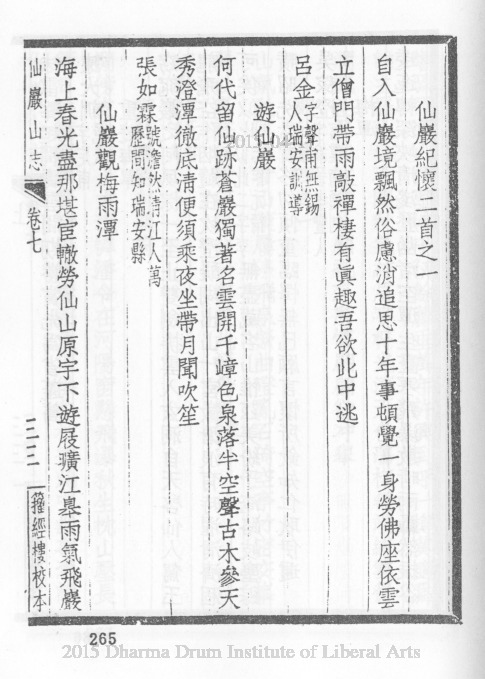 仙巖紀懷二首之一
自入仙巖境飄然俗慮消追思十年事頓覺一身勞佛座依雲
立僧門帶雨敲禪棲有眞趣吾欲此中逃
呂金字聲甫無錫人瑞安訓導
遊仙巖
何代留仙跡蒼巖獨著名雲開千嶂色泉落半空聲古木參天
秀澄潭徹底清便須乘夜坐帶月聞吹笙
張如霖號澹然清江人萬歷間知瑞安縣
仙巖觀梅雨潭
海上春光盡那堪宦轍勞仙山原宇下遊屐曠江臯雨氣飛巖
仙巖山志
卷七
三三
籀經樓校本
265
2015 Dharma Drum Institute of Liberal Arts